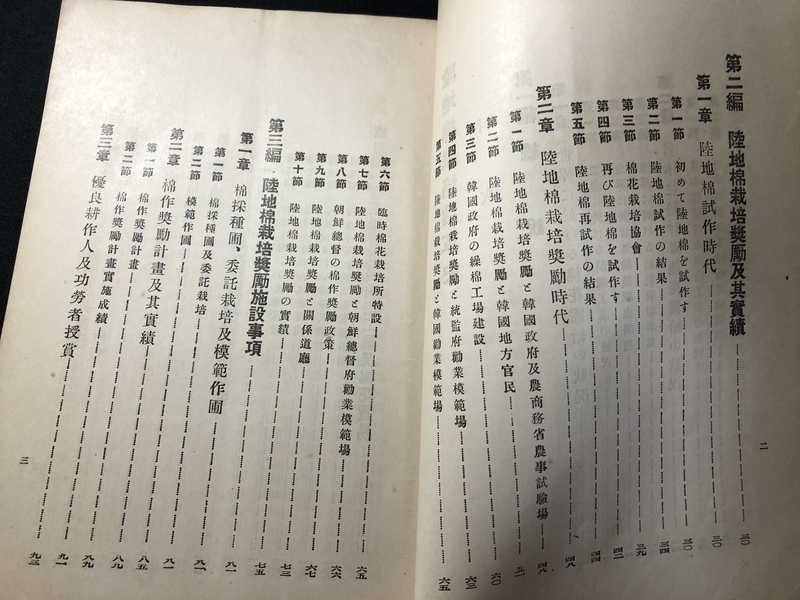 第二編 陸地棉栽培奬勵及其實績 三〇
第一章 陸地棉試作時代 三〇
第一節 初めて陸地棉を試作す 三〇
第二節 陸地棉試作の結果 三四
第三節 棉花栽培協會 三九
第四節 再び陸地棉を試作す 四二
第五節 陸地棉再試作の結果 四四
第二章 陸地棉栽培奬勵時代 四八
第一節 陸地棉栽培奬勵と韓國政府及農商務省農事試驗場 四八
第二節 陸地棉栽培奬勵と韓國地方官民 五一
第三節 韓國政府の繰棉工場建設 六〇
第四節 陸地棉栽培奬勵と統監府勸業模範場 六三
第五節 陸地棉栽培奬勵と韓國勸業模範場 六五
二
第六節 臨時棉花栽培所特設 六五
第七節 陸地棉栽培奬勵と朝鮮總督府勸業模範場 六六
第八節 朝鮮總督の棉作奬勵政策 六七
第九節 陸地棉栽培奬勵と關係道廳
第十節 陸地棉栽培奬勵の實績 七三
第三編 陸地棉栽培奬勵施設事項 七五
第一章 棉採種圃、委託栽培及模範作圃 八一
第一節 棉採種圃及委託栽培 八一
第二節 模範作圃
第二章 棉作奬勵計畫及其實績 八一
第一節 棉作奬勵計畫 八五
第二節 棉作奬勵計畫實施成績 八九
第三章 優良耕作人及功勞者授賞
三